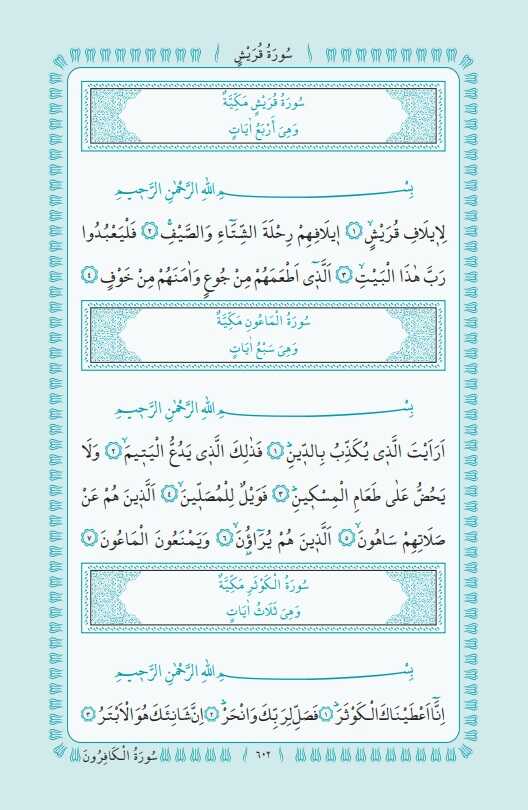 سُورَةُ قُرَيْشٍ
سُورَةُ قُرَيْشٍ مَكِّيَّةٌ
وَهِىَ أَرْبَعُ اٰيَاتٍ
بِسْمِ اللهِ الرَّحْمٰنِ الرَّحٖيمِ
لِاٖيلَافِ قُرَيْشٍۙ ﴿١﴾ اٖيلَافِهِمْ رِحْلَةَ الشِّتَٓاءِ وَالصَّيْفِۚ ﴿٢﴾ فَلْيَعْبُدُوا
رَبَّ هٰذَا الْبَيْتِۙ ﴿٣﴾ اَلَّذٖٓى اَطْعَمَهُمْ مِنْ جُوعٍ وَاٰمَنَهُمْ مِنْ خَوْفٍ ﴿٤﴾
سُورَةُ الْمَاعُونِ مَكِّيَّةٌ
وَهِىَ سَبْعُ اٰيَاتٍ
بِسْمِ اللهِ الرَّحْمٰنِ الرَّحٖيمِ
اَرَاَيْتَ الَّذٖى يُكَذِّبُ بِالدّٖينِؕ ﴿١﴾ فَذٰلِكَ الَّذٖى يَدُعُّ الْيَتٖيمَۙ ﴿٢﴾ وَلَا
يَحُضُّ عَلٰى طَعَامِ الْمِسْكٖينِؕ ﴿٣﴾ فَوَيْلٌ لِلْمُصَلّٖينَۙ ﴿٤﴾ اَلَّذٖينَ هُمْ عَنْ
صَلَاتِهِمْ سَاهُونَۙ ﴿٥﴾ اَلَّذٖينَ هُمْ يُرَٓاؤُ۫نَۙ ﴿٦﴾ وَيَمْنَعُونَ الْمَاعُونَ ﴿٧﴾
سُورَةُ الْكَوْثَرِ مَكِّيَّةٌ
وَهِىَ ثَلَاثُ اٰيَاتٍ
بِسْمِ اللهِ الرَّحْمٰنِ الرَّحٖيمِ
اِنَّٓا اَعْطَيْنَاكَ الْكَوْثَرَؕ ﴿١﴾ فَصَلِّ لِرَبِّكَ وَانْحَرْؕ ﴿٢﴾ اِنَّ شَانِئَكَ هُوَ الْاَبْتَرُ ﴿٣﴾
٦٠٢
سُورَةُ الْكَافِرُونَ